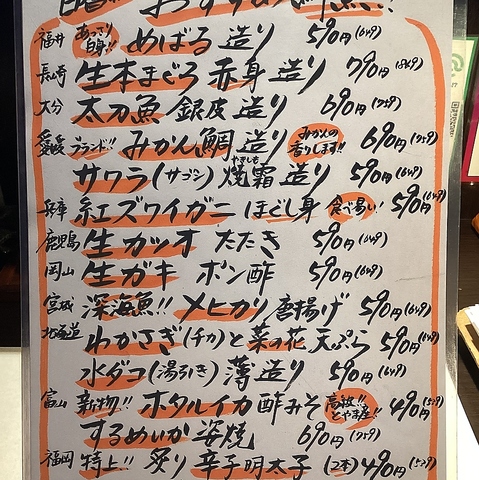 おすすめ
福井 あっさり白身!! めばる 造り 590円(649)
長崎 生本まぐろ 赤身 造り 790円(869)
大分 太刀魚 銀皮 造り 690円(759)
愛媛 ブランド!! みかん鯛 造り みかんの香りします!! 690円(759)
サワラ(サゴシ) 焼霜やきしも 造り 590円(649)
兵庫 紅ズワイガニ ほぐし身 食べ易い! 590円(649)
鹿児島 生カツオ たたき 590円(649)
岡山 生ガキ ポン酢 590円(649)
宮城 深海魚!! メヒカリ 唐揚げ 590円(649)
北海道 わかさぎ(チカ)と菜の花 天ぷら 590円(649)
水ダコ(湯引き) 薄造り 590円(649)
富山 新物!! ホタルイカ 酢みそ 高級!!とやま産!! 490円(529)
するめいか 姿焼 690円(759)
福岡 特上!! 炙り 辛子明太子 (2本) 490円(529)